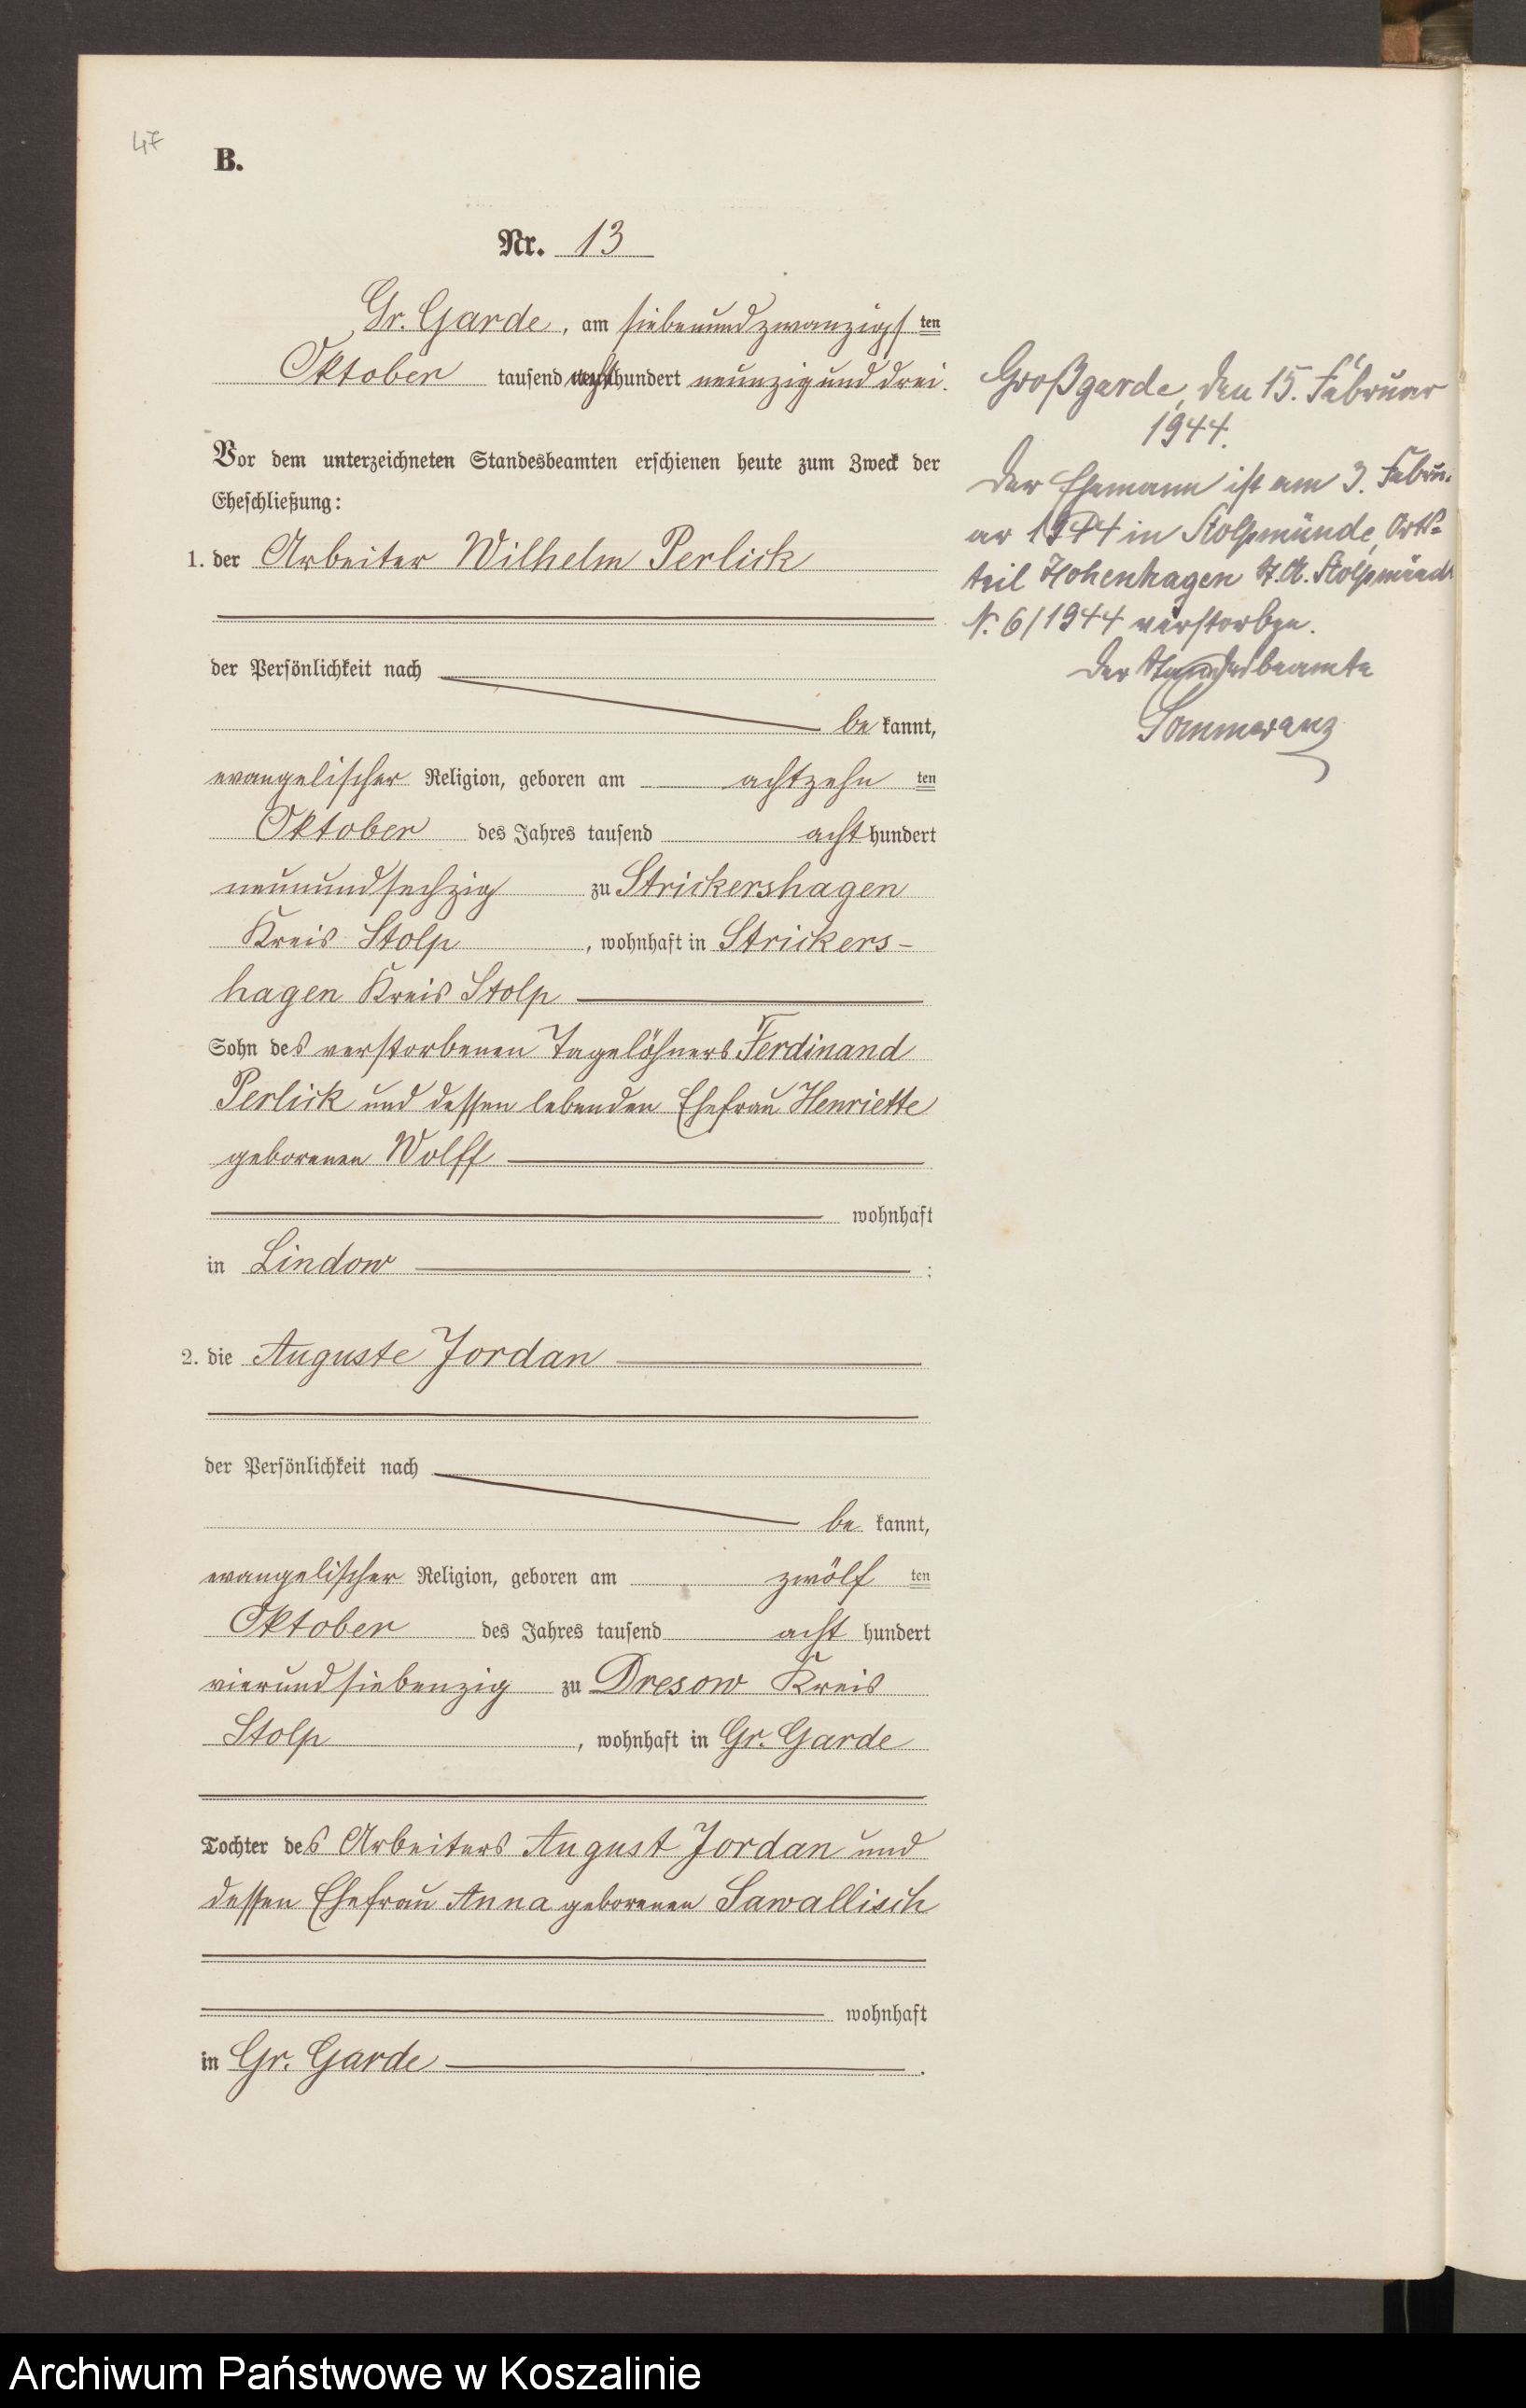 47
B.
Nr. 13
Gr. Garde, am siebenundzwanzigsten
Oktober tausend achthundert neunzig und drei.
Vor dem unterzeichneten Standesbeamten erschienen heute zum Zweck der
Eheschließung:
1. der Arbeiter Wilhelm Perlick
der Persönlichkeit nach
be kannt,
evangelischer Religion, geboren am achtzehn ten
Oktober des Jahres tausend acht hundert
neunundsechzig zu Strickershagen
Kreis Stolp, wohnhaft in Strickers-
hagen Kreis Stolp
Sohn des verstorbenen Tagelöhners Ferdinand
Perlick und dessen lebenden Ehefrau Henriette
geborenen Wolff
wohnhaft
in Lindow ;
2. die Auguste Jordan
der Persönlichkeit nach
be kannt,
evangelischer Religion, geboren am zwölf ten
Oktober des Jahres tausend acht hundert
vierundsiebenzig zu Dresow Kreis
Stolp, wohnhaft in Gr. Garde
Tochter des Arbeiters August Jordan und
dessen Ehefrau Anna geborenen Sawallisch
wohnhaft
in Gr. Garde .
Großgarde, den 15. Februar
1944.
Der Ehemann ist am 3. Febru-
ar 1944 in Stolpmünde, Orts-
teil Hohenhagen St.A. Stolpmünde
N. 6/1944 verstorben.
Der Standesbeamte
Sommeranz
Archiwum Państwowe w Koszalinie